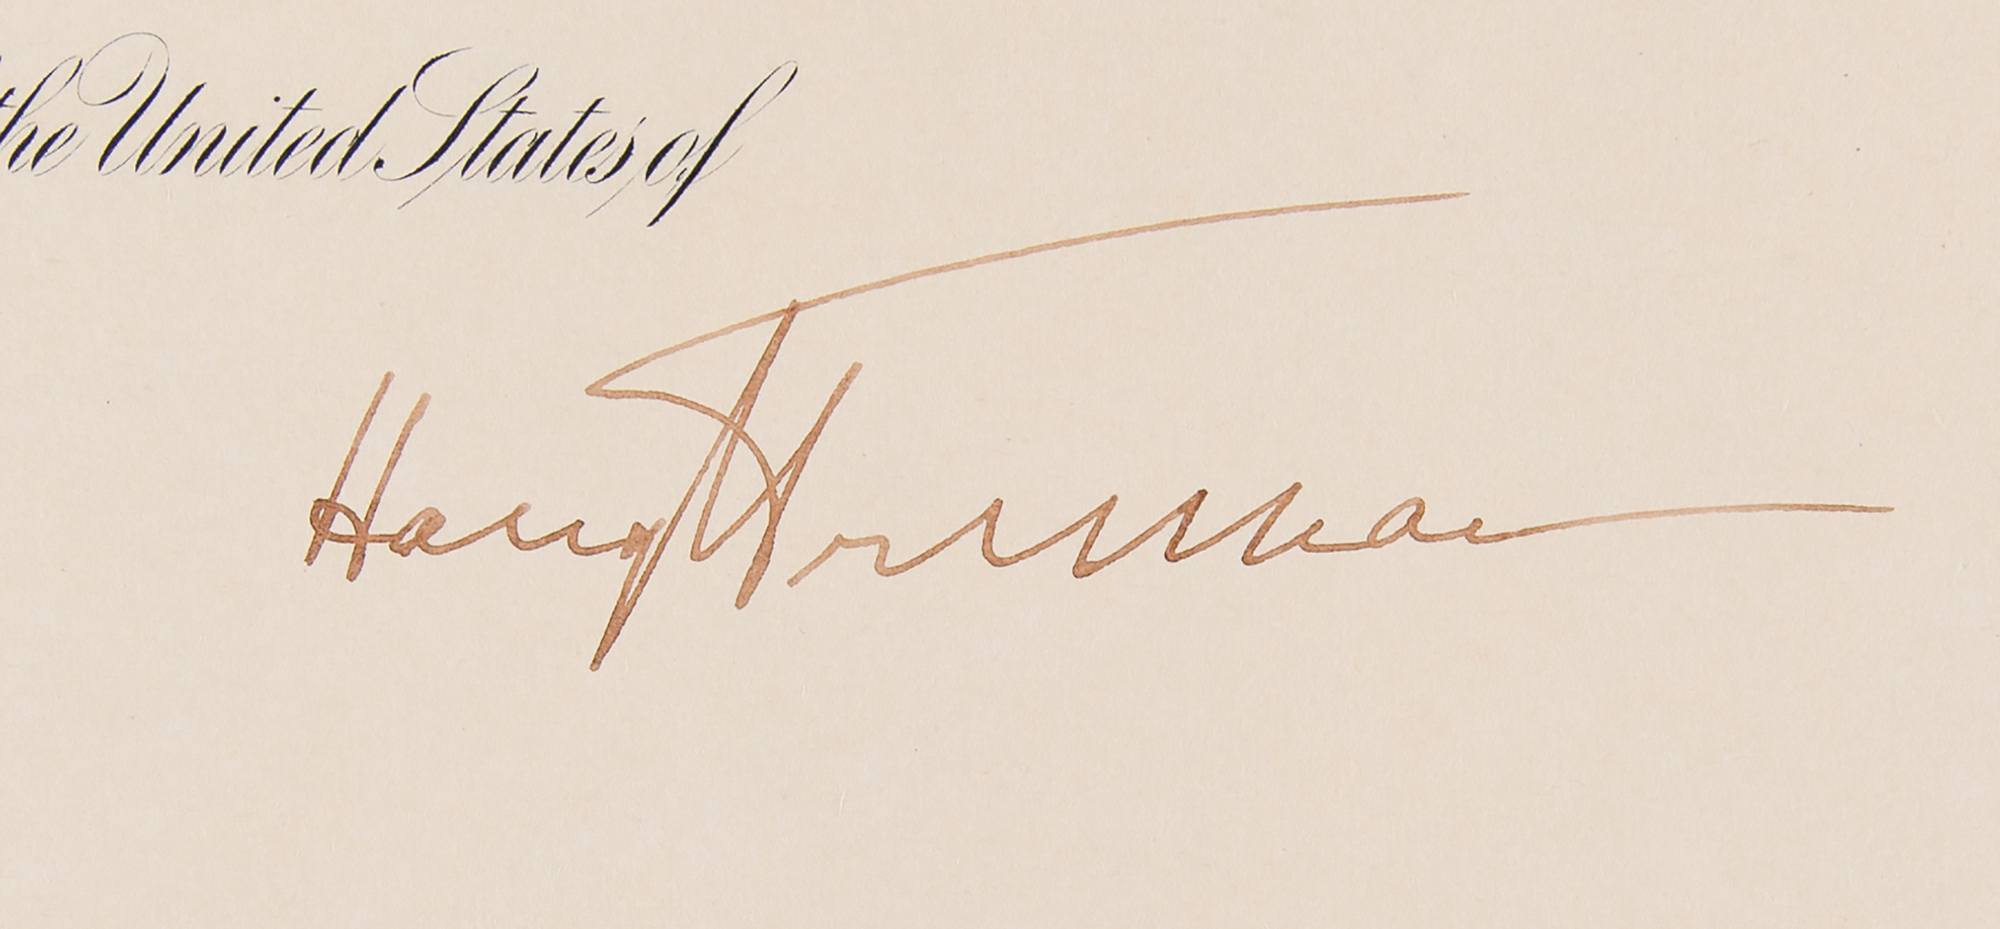 the United States of
Harry Truman